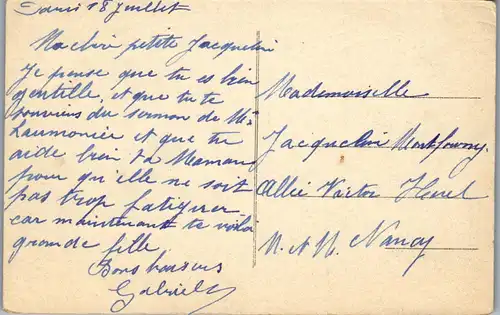 Paris 18 Juillet
Ma chère petite Jacqueline
Je pense que tu es bien
gentille, et que tu te
souviens du sermon de Mr
L'aumonier et que tu
aide bien ta Maman
pour qu'elle ne soit
pas trop fatiguée
car maintenant te voilà
grande fille
Bons baisers
Gabriel
Mademoiselle
Jacqueline
Allée Victor
M. et M. Nancy